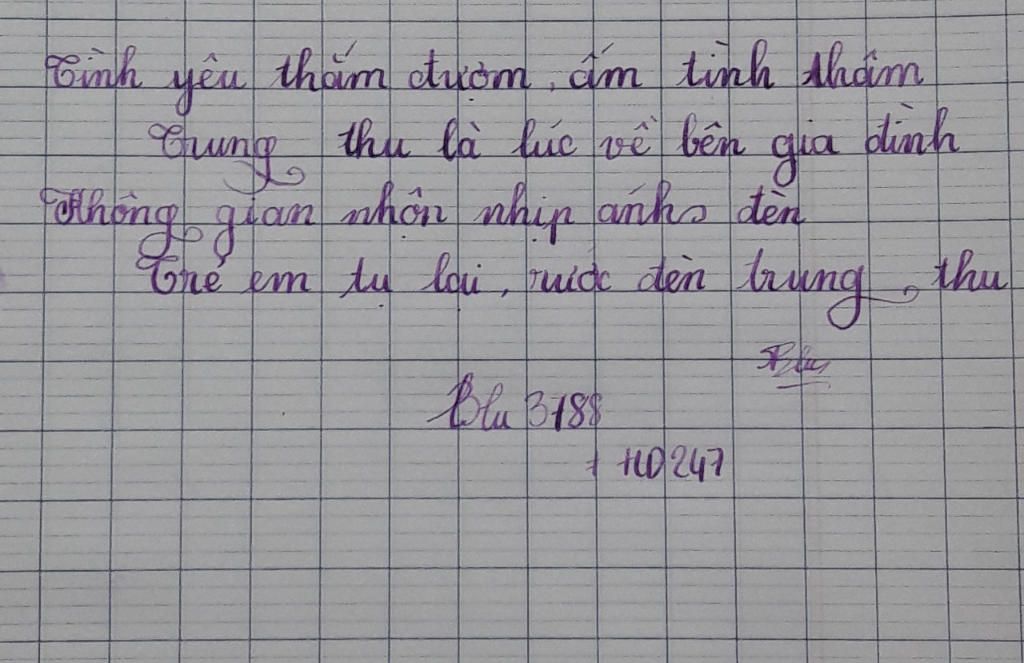 Tình yêu thắm đượm, ấm tình thâm
Trung thu là lúc về bên gia đình
Không gian nhộn nhịp ánh đèn
Trẻ em tụ lại, rước đèn trung thu
Blu
Blu 3188
+ HD 247